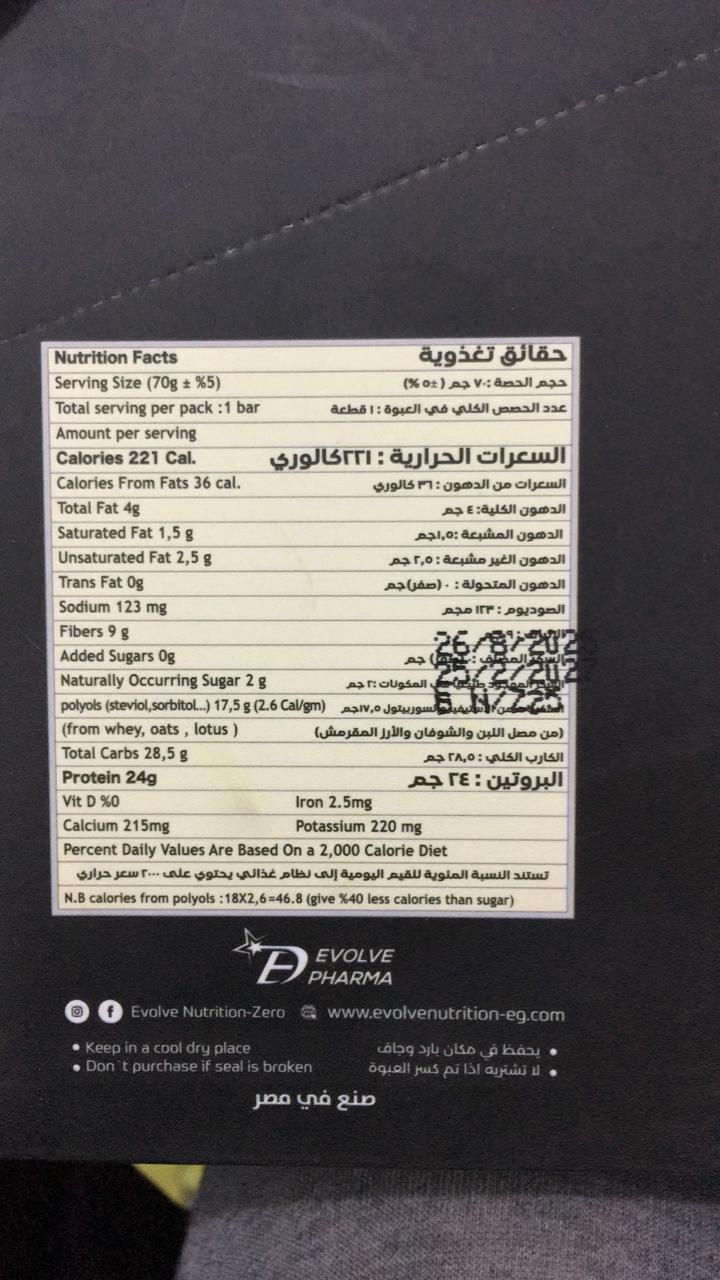 Nutrition Facts حقائق تغذوية
Serving Size (70g ± %5) حجم الحصة :٧٠ جم (±٥ %)
Total serving per pack :1 bar عدد الحصص الكلي في العبوة : ١ قطعة
Amount per serving
Calories 221 Cal. السعرات الحرارية : ٢٢١كالوري
Calories From Fats 36 cal. السعرات من الدهون : ٣٦ كالوري
Total Fat 4g الدهون الكلية: ٤ جم
Saturated Fat 1,5 g الدهون المشبعة :١,٥جم
Unsaturated Fat 2,5 g الدهون الغير مشبعة : ٢,٥ جم
Trans Fat 0g الدهون المتحولة : ٠ (صفر)جم
Sodium 123 mg الصوديوم : ١٢٣ مجم
Fibers 9 g
Added Sugars 0g جم
Naturally Occurring Sugar 2 g المكونات :٢ جم
polyols (steviol,sorbitol...) 17,5 g (2.6 Cal/gm) والسوربيتول ١٧,٥جم
(from whey, oats , lotus ) (من مصل اللبن والشوفان والأرز المقرمش)
Total Carbs 28,5 g الكارب الكلي : ٢٨,٥ جم
Protein 24g البروتين : ٢٤ جم
Vit D %0 Iron 2.5mg
Calcium 215mg Potassium 220 mg
Percent Daily Values Are Based On a 2,000 Calorie Diet
تستند النسبة المئوية للقيم اليومية إلى نظام غذائي يحتوي على ٢٠٠٠ سعر حراري
N.B calories from polyols :18X2,6=46.8 (give %40 less calories than sugar)
EVOLVE
PHARMA
Evolve Nutrition-Zero www.evolvenutrition-eg.com
• Keep in a cool dry place • يحفظ في مكان بارد وجاف
• Don`t purchase if seal is broken • لا تشتريه اذا تم كسر العبوة
صنع في مصر